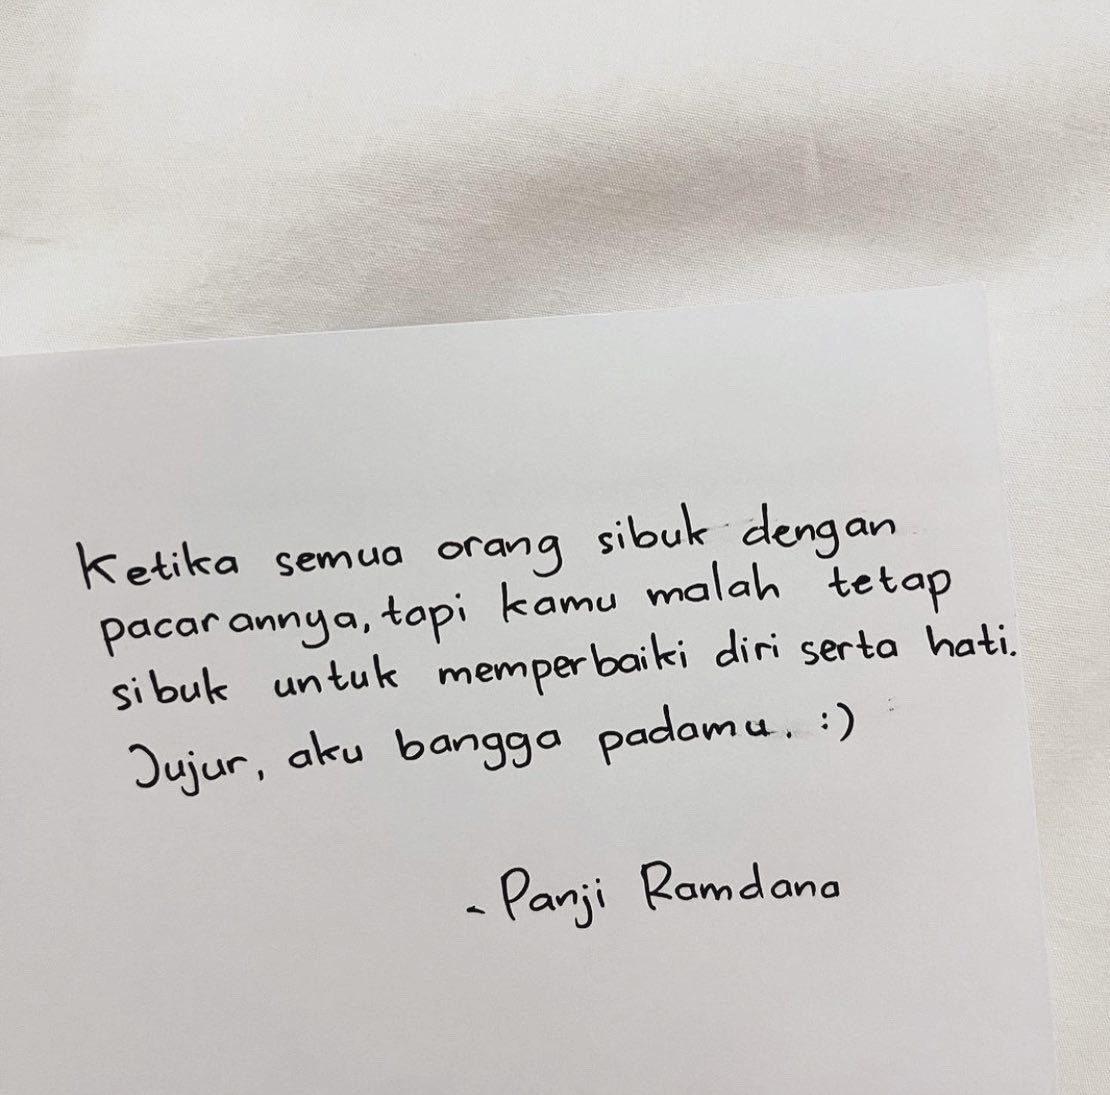 Ketika semua orang sibuk dengan
pacarannya, tapi kamu malah tetap
sibuk untuk memperbaiki diri serta hati.
Jujur, aku bangga padamu. :)
- Panji Ramdana